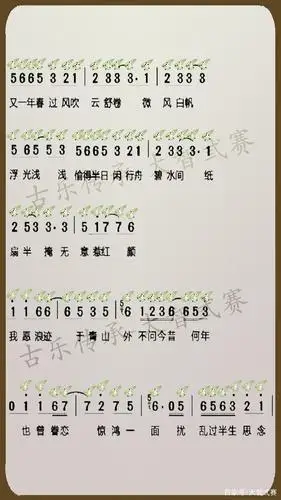 5665 3 21 | 2 33 3· 1 | 2 33 3
又一年春 过 风吹 云 舒卷 微 风 白帆
5 65 5 3 5665 3 21 | 2 33 3· 1 | 2 33 3
浮 光浅 浅 偷得半日 闲 行舟 碧 水间 纸
2 5 33 3· | 5 1 77 6
扇 半 掩 无 意惹红 颜
1 1 66 | 2 2 1 7 6 | 6 1236 653
我 愿 浪迹 于 青 山 外 不问今昔 何年
0 1 1 67 | 7 2 7 5 | 6· 05 | 6563 2 21
也 曾 眷恋 惊 鸿 一 面 扰 乱过半生 思 念
古乐传承 大智武赛
古乐传承 大智武赛